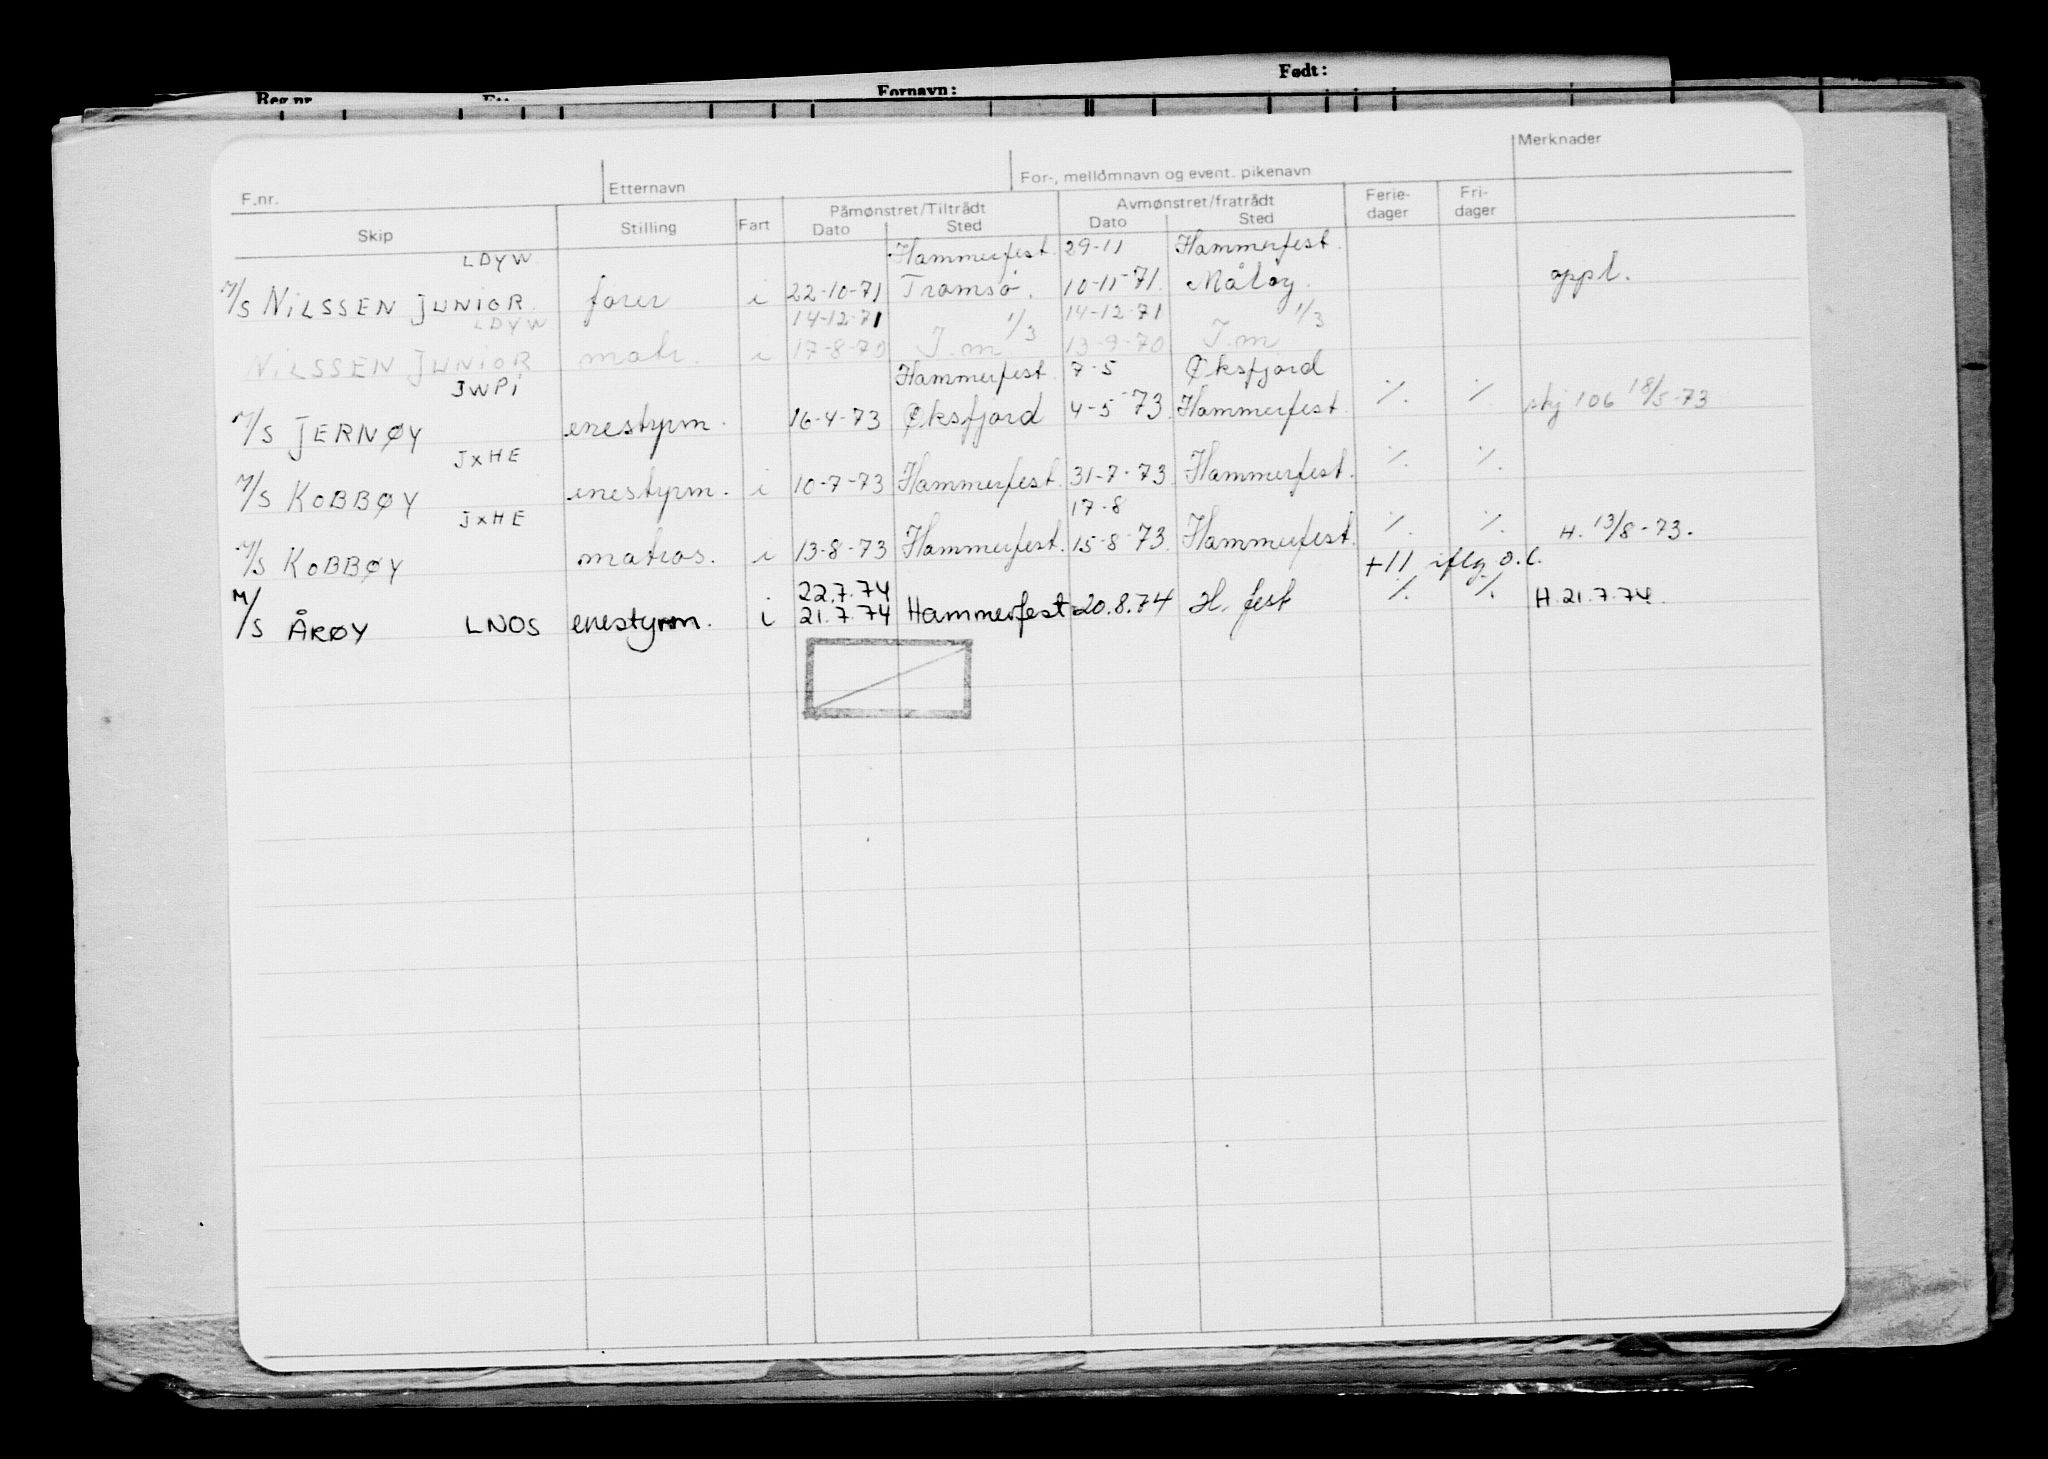 Født:
Reg.nr. Fornavn:
F.nr. Etternavn For-, mellomnavn og event. pikenavn Merknader
Skip Stilling Fart Påmønstret/Tiltrådt Avmønstret/fratrådt Ferie-dager Fri-dager
Dato Sted Dato Sted
LDYW Hammerfest 29-11 Hammerfest
M/S NILSSEN JUNIOR. fører i 22-10-71 Tromsø. 10-11-71. Måløy. oppl.
LDYW 14-12-71 1/3 14-12-71 1/3
NILSSEN JUNIOR matr. i 17-8-70 I.m 13-9-70 I.m
JWPI Hammerfest 7-5 Øksfjord
M/S JERNØY enestyrm. 16-4-73 Øksfjord 4-5-73. Hammerfest. ٪. ٪. skj 106 18/5-73
JXHE
M/S KOBBØY enestyrm. i 10-7-73 Hammerfest. 31-7-73. Hammerfest. ٪. ٪.
JXHE 17-8
M/S KOBBØY matros. i 13-8-73 Hammerfest. 15-8-73. Hammerfest. ٪. ٪. H. 13/8-73.
22.7.74 +11 iflg o.l.
M/S ÅRØY LNOS enestyrm. i 21.7.74 Hammerfest 20.8.74 H. fest ٪. ٪. H. 21.7.74.